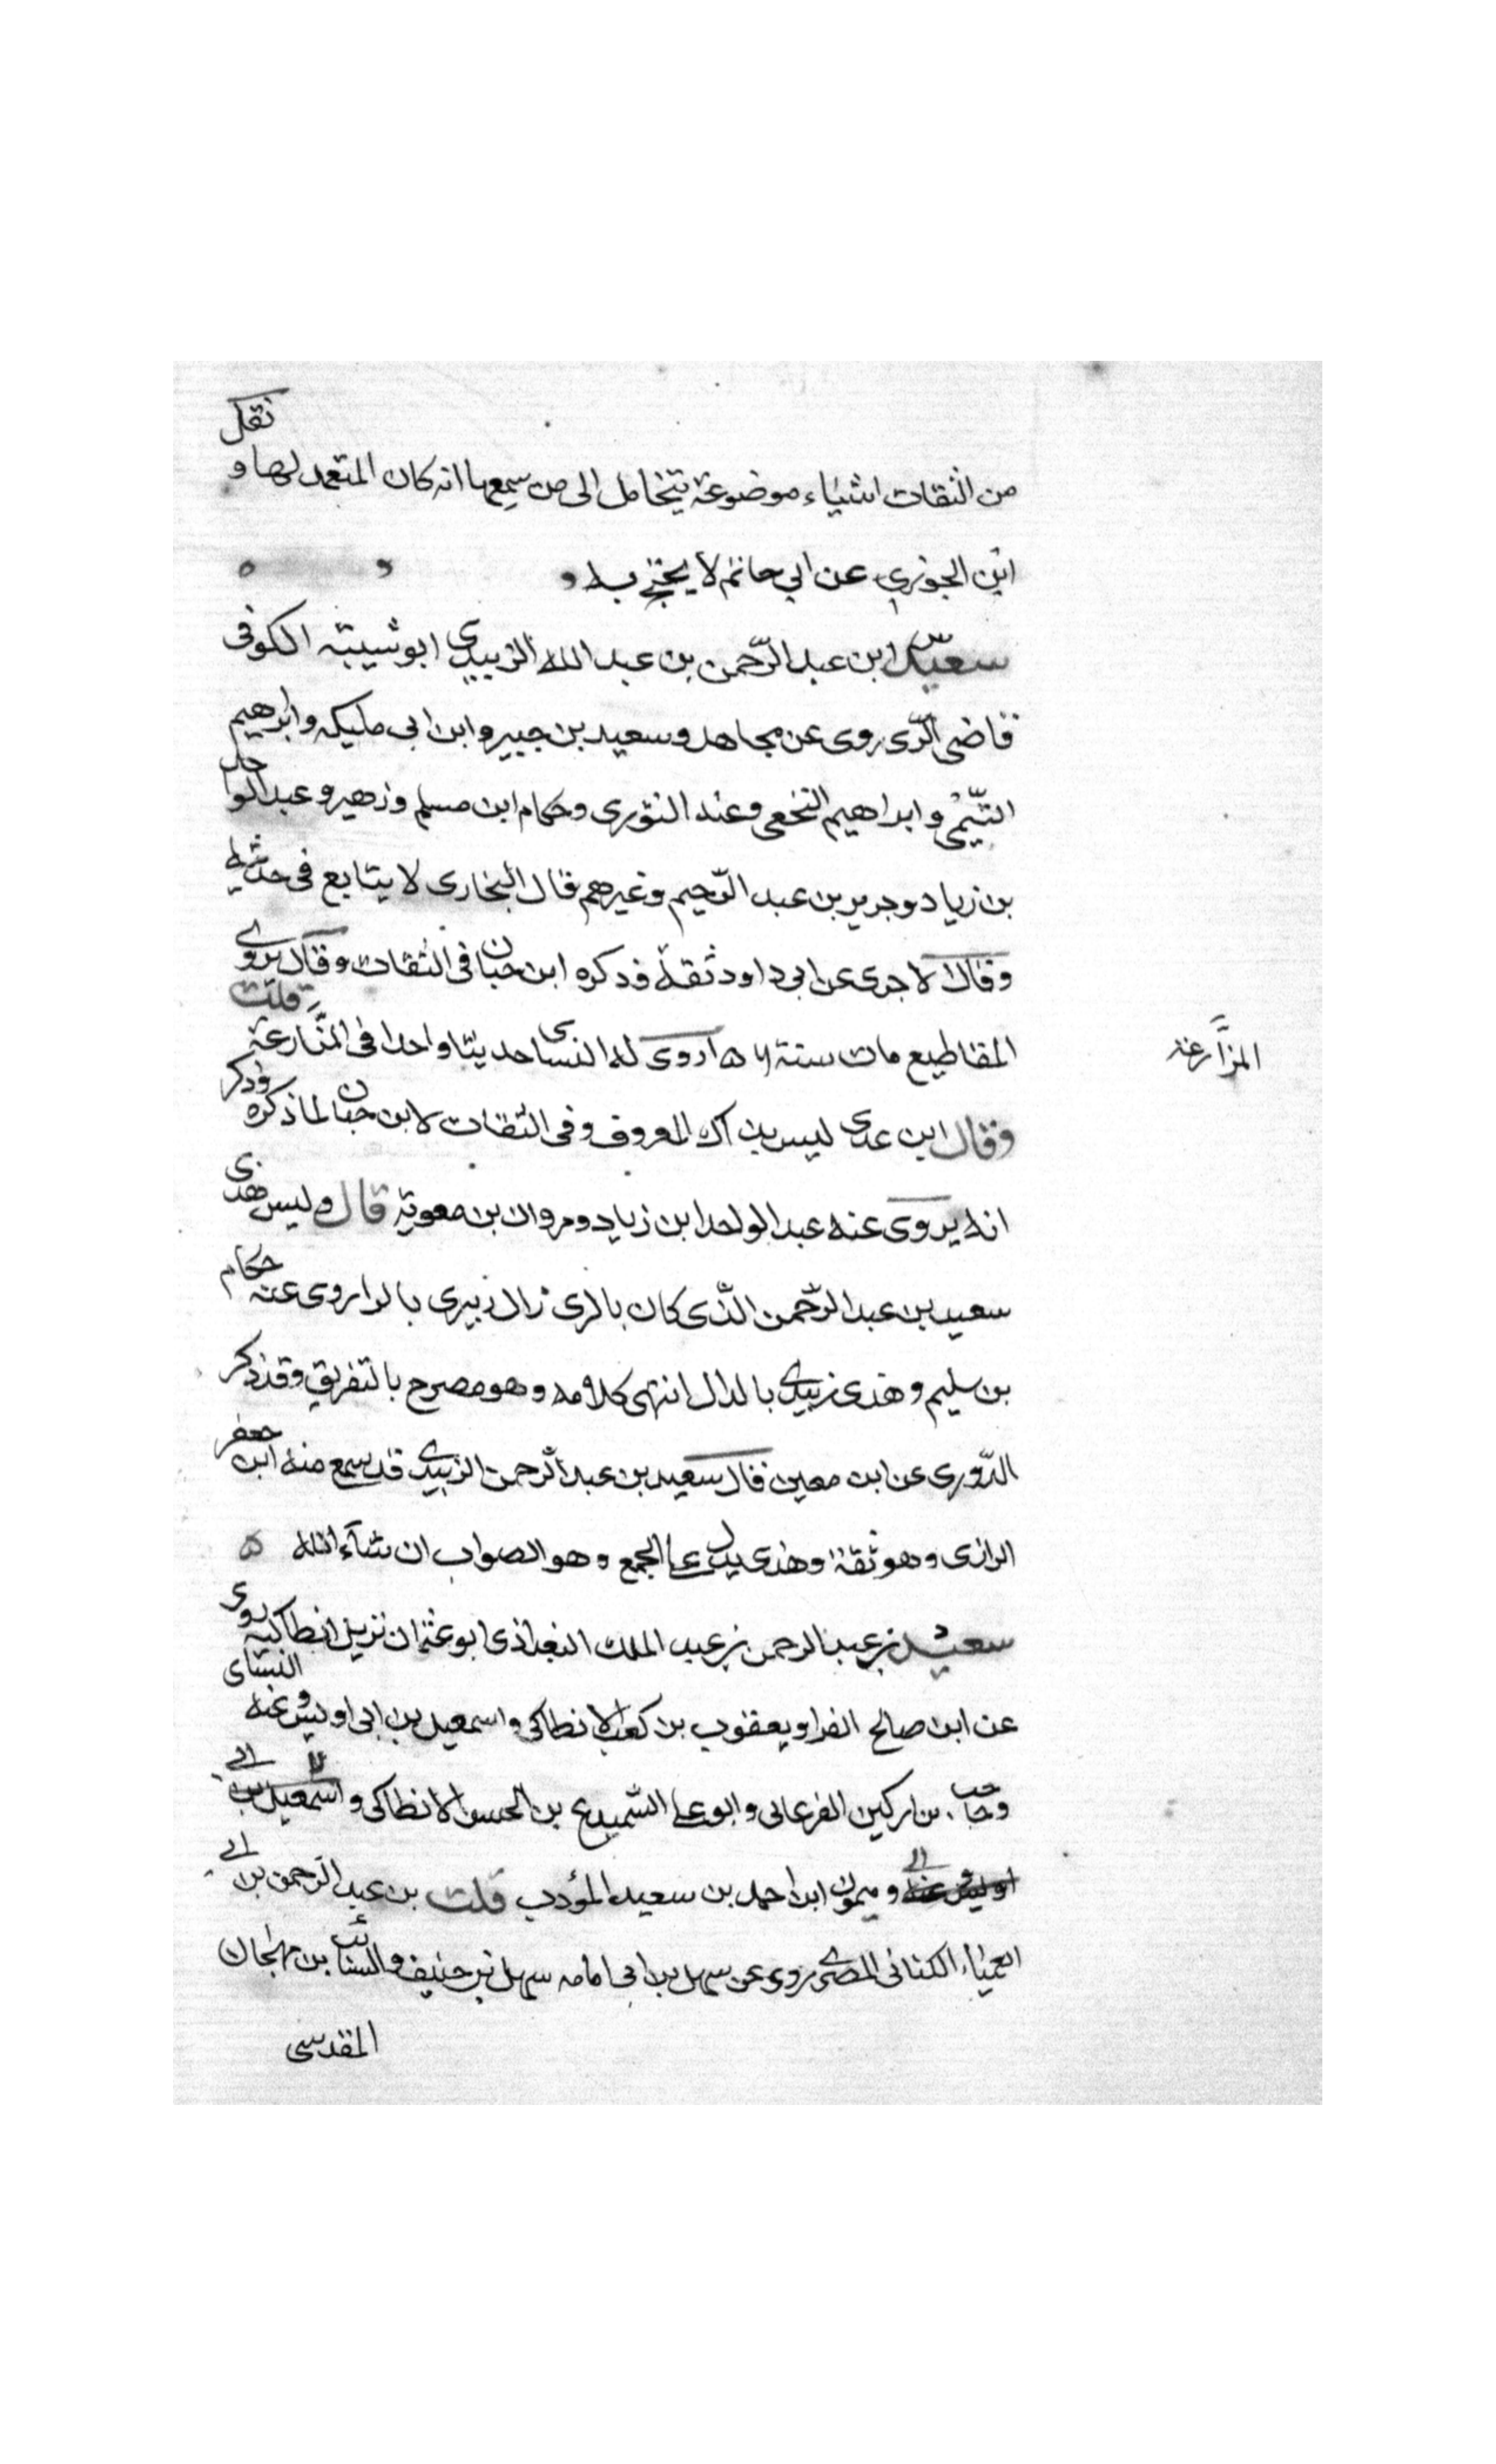 من الثقات اشياء موضوعة يتخامل الى من سمعها انه كان المتعمد لها و نقل
ابن الجوزي عن ابي حاتم لا يحتج به
سعيد ابن عبد الرّحمن بن عبد الله الزبيدي ابو شيبة الكوفى
قاضى الرّى روى عن مجاهد وسعيد بن جبير وابن ابى مليكه وابرهيم
التّيمى وابراهيم النخعى وعنه الثورى وحكام ابن مسلم وزهير وعبد الواحد
بن زياد وجرير بن عبد الرّحيم وغيرهم قال البخارى لا يتابع فى حديثه
وقال لاجرى عن ابى داود ثقة وذكره ابن حبان فى الثقات وقال يروى
المقاطيع مات سنة ١٥٦ روى له النسى حديثا واحدا فى المزارعة قلت
المزَّارعة
وقال ابن عدى ليس بن اك المعروف وفى الثقات لابن حبان لما ذكره وذكر
انه يروى عنه عبد الواحد ابن زياد ومروان بن معوية قال وليس هذى
سعيد بن عبد الرّحمن الذّى كان بالرى زال زبيرى بالرا روى عنه حكام
بن سليم وهذى زبيدى بالدال انتهى كلامه وهو مصرح بالتفريق وقد ذكر
الدّورى عن ابن معين قال سعيد بن عبد الرّحمن الزبيدى قد سمع منه ابن جعفر
الرازى وهو ثقة وهذى يدل على الجمع وهو الصواب ان شآء الله
سعيد بن عبد الرحمن بن عبد الملك البغداذى ابو عثمان نزيل انطاكيه روى
عن ابن صالح الفرا ويعقوب بن كعب الانطاكى واسمعيل بن ابى اويس وعنه النساى
وحاجب بن اركين الفرعانى وابو على السّميدع بن الحسن الانطاكى واسمعيل بن
اويس عنه وميمون ابن احمد بن سعيد المؤدب قلت بن عبد الرّحمن بن ابى
العمياء الكنانى المصرى روى عن سهل بن ابى امامه سهل بن حنيف والسائب بن مهجان
المقدسى